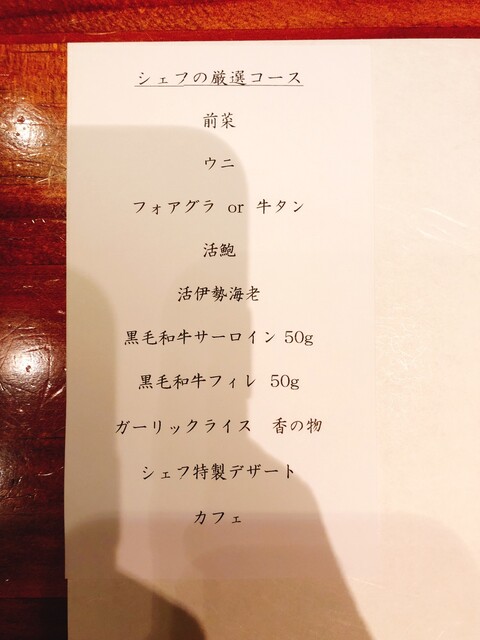 シェフの厳選コース
前菜
ウニ
フォアグラ or 牛タン
活鮑
活伊勢海老
黒毛和牛サーロイン 50g
黒毛和牛フィレ 50g
ガーリックライス　香の物
シェフ特製デザート
カフェ